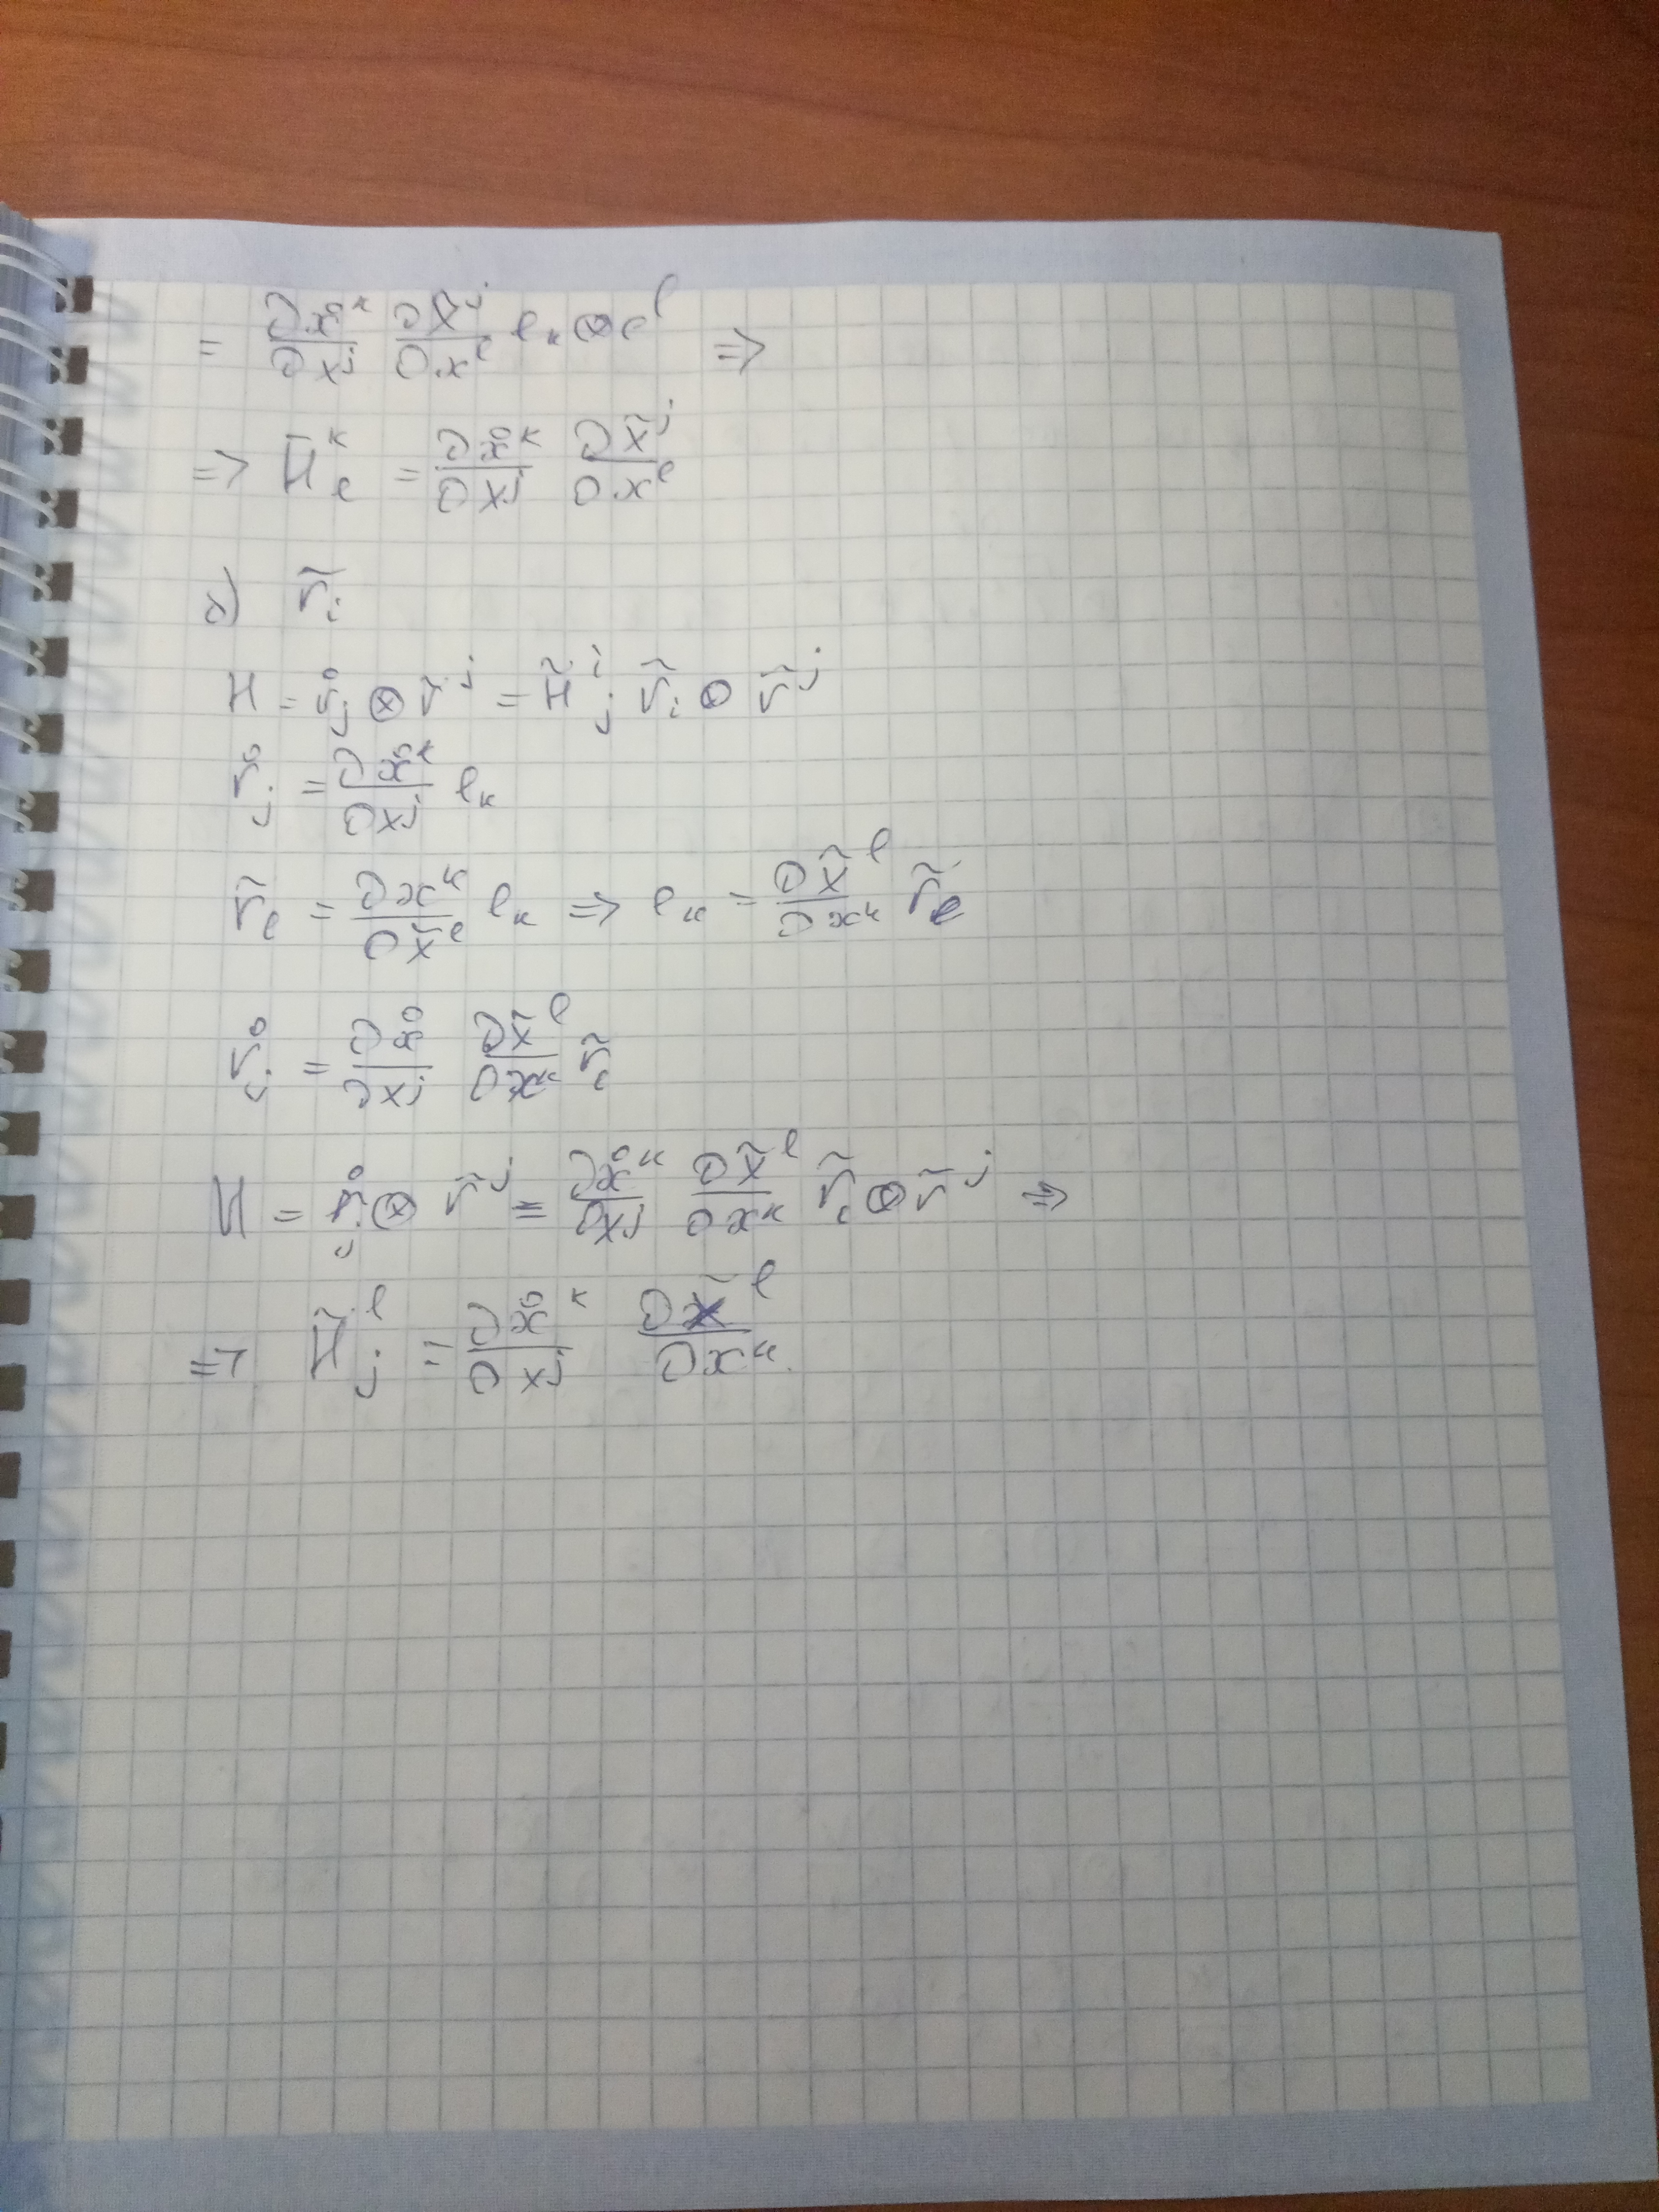 = ∂x̊ᵏ/∂xʲ ∂x̃ʲ/∂xˡ eₖ ⊗ eˡ ⇒
⇒ H̄ᵏₗ = ∂x̊ᵏ/∂xʲ ∂x̃ʲ/∂xˡ
r̃ᵢ
H = r̊ⱼ ⊗ r̃ʲ = H̃ⁱⱼ r̃ᵢ ⊗ r̃ʲ
r̊ⱼ = ∂x̊ᵏ/∂xʲ eₖ
r̃ₗ = ∂xᵏ/∂x̃ˡ eₖ ⇒ eₖ = ∂x̃ˡ/∂xᵏ r̃ₗ
r̊ⱼ = ∂x̊/∂xʲ ∂x̃ˡ/∂xᵏ r̃ₗ
H = r̊ⱼ ⊗ r̃ʲ = ∂x̊ᵏ/∂xʲ ∂x̃ˡ/∂xᵏ r̃ₗ ⊗ r̃ʲ ⇒
⇒ H̃ˡⱼ = ∂x̊ᵏ/∂xʲ ∂x̃ˡ/∂xᵏ